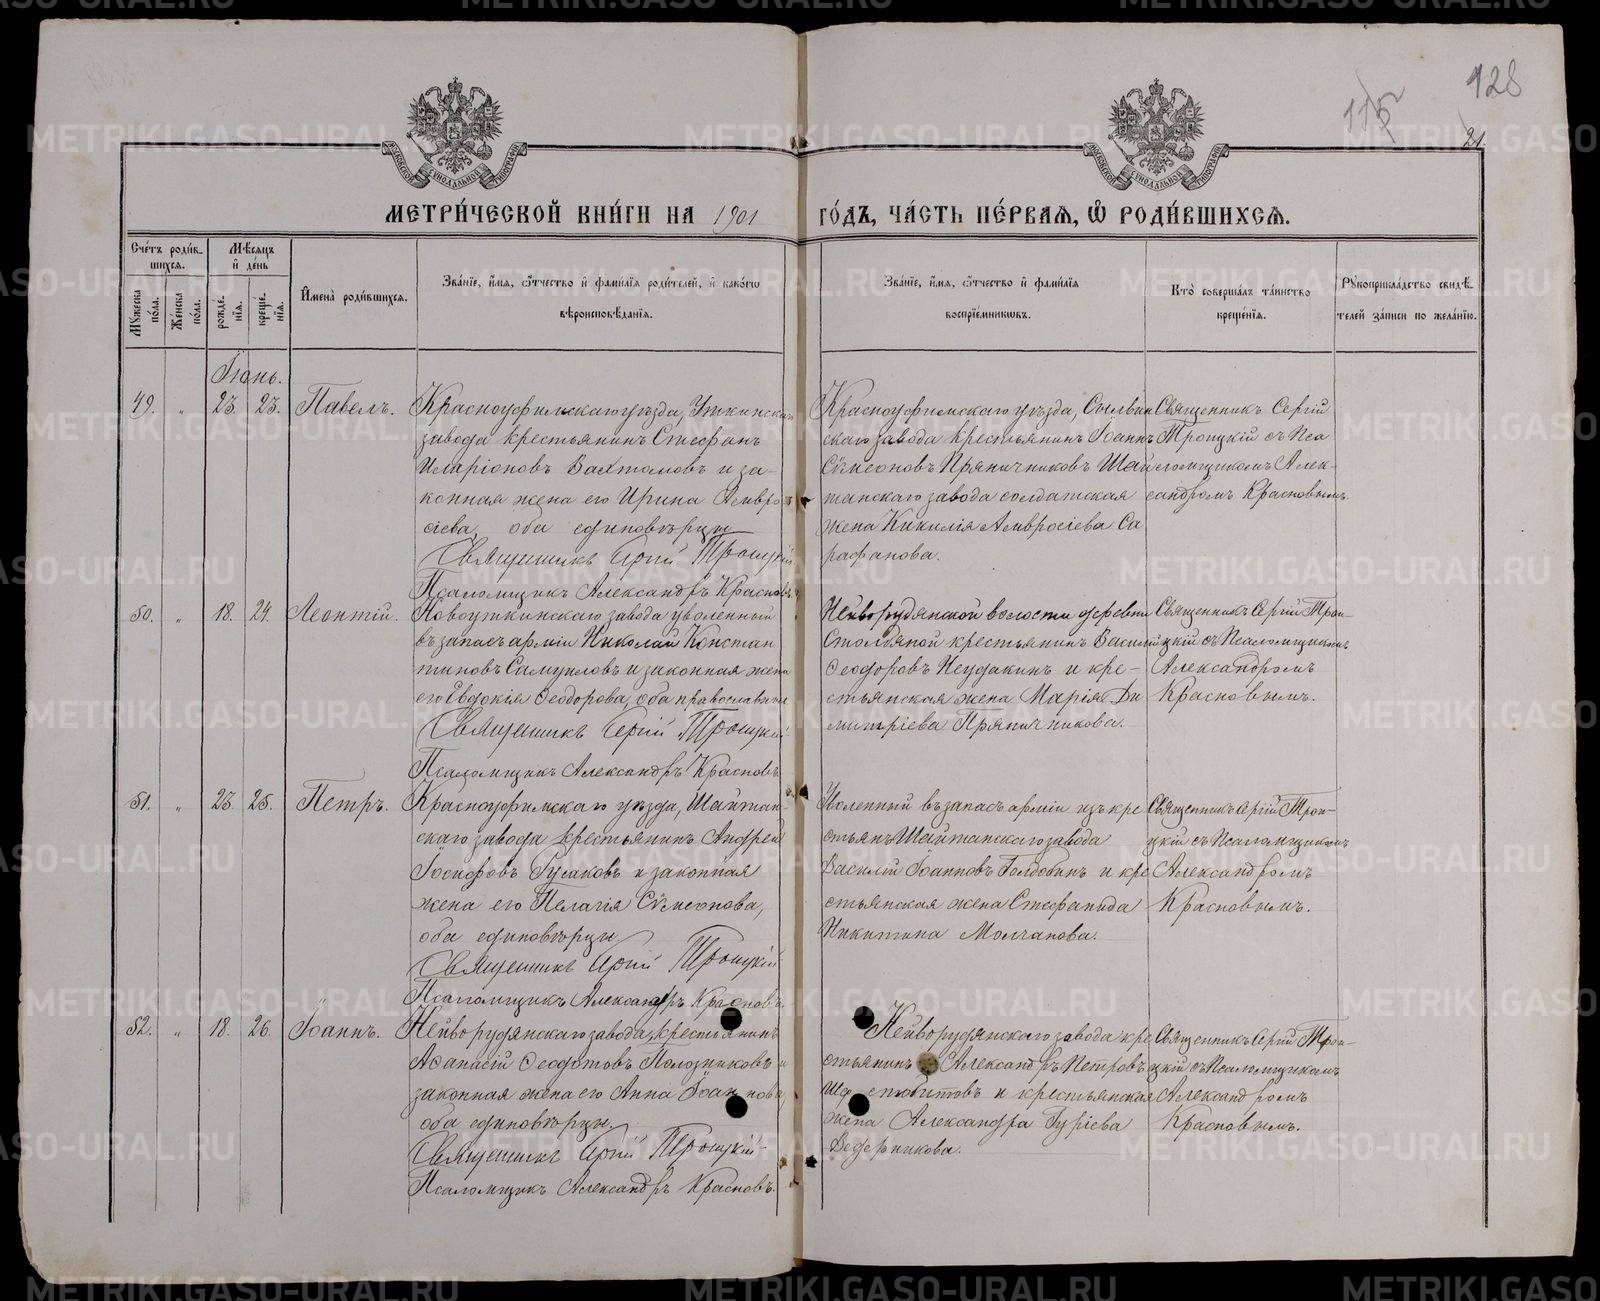 128
115
21
МЕТРИ́ЧЕСКОЙ КНИ́ГИ НА 1901 ГО́ДЪ, ЧА́СТЬ ПЕ́РВАЯ, Ѡ҆ РОДИ́ВШИХСЯ.
Сче́тъ роди́в-
шихся.
Мѣ́сяцъ
и҆ де́нь
Мꙋ́жеска по́ла.
Же́нска по́ла.
рожде́-
нїя.
креще́-
нїя.
И҆мена̀ роди́вшихся.
Зва́нїе, и҆́мя, ѻ҆́тчество и҆ фами́лїя роди́телей, и҆ како́гѡ
вѣроисповѣ́данїя.
Зва́нїе, и҆́мя, ѻ҆́тчество и҆ фами́лїя
воспрїе́мникѡвъ.
Кто̀ соверша́лъ та́инство
креще́нїя.
Рꙋкоприкла́дство свидѣ́-
телей за́писи по жела́нїю.
Іюнь.
49. " 23. 23. Павелъ.
Красноуфимскаго уѣзда, Уткинскаго
завода крестьянинъ Стефанъ
Иларіоновъ Вахтомовъ и за-
конная жена его Ирина Амвро-
сіева, оба единовѣрцы
Священникъ Сергій Троицкій
Псаломщикъ Александръ Красновъ
Красноуфимскаго уѣзда, Сылвин
скаго завода крестьянинъ Іоаннъ
Сѵмеоновъ Пряничниковъ Шай
танскаго завода солдатская
жена Кикилія Амвросіева Са
рафанова.
Священникъ Сергій
Троицкій съ Пса
ломщикомъ Алек-
сандромъ Красновымъ
50. " 18. 24. Леонтій.
Новоуткинскаго завода уволенный
въ запасъ арміи Николай Констан
тиновъ Самуиловъ и законная жена
его Евдокія Ѳеодорова, оба православные
Священникъ Сергій Троицкій
Псаломщикъ Александръ Красновъ
Нейворудянской волости деревни
Столбяной крестьянинъ Василій
Ѳеодоровъ Неудакинъ и кре-
стьянская жена Марія Ди
митріева Пряничникова.
Священникъ Сергій Трои-
цкій съ Псаломщикомъ
Александромъ
Красновымъ.
51. " 23. 25. Петръ.
Красноуфимскаго уѣзда, Шайтан-
скаго завода крестьянинъ Андрей
Іосифовъ Русаковъ и законная
жена его Пелагія Сѵмеонова,
оба единовѣрцы
Священникъ Сергій Троицкій
Псаломщикъ Александръ Красновъ
въ запасъ арміи изъ кре
стьянъ Шайтанскаго завода
Василій Іоанновъ Голдобинъ и кре
стьянская жена Стефанида
Никитина Молчанова.
Священникъ Сергій Трои-
цкій съ Псаломщикомъ
Александромъ
Красновымъ.
52. " 18. 26. Іоаннъ.
Нейворудянскаго завода крестьянинъ
Аѳанасій Ѳеодотовъ Полозниковъ и
законная жена его Анна Іоаннова,
оба единовѣрцы.
Священникъ Сергій Троицкій
Псаломщикъ Александръ Красновъ.
Нейворудянскаго завода кре
стьянинъ Александръ Петровъ
и крестьянская
жена Александра Гуріева
Ведерникова.
Священникъ Сергій Трои-
цкій съ Псаломщикомъ
Александромъ
Красновымъ.
METRIKI.GASO-URAL.RU